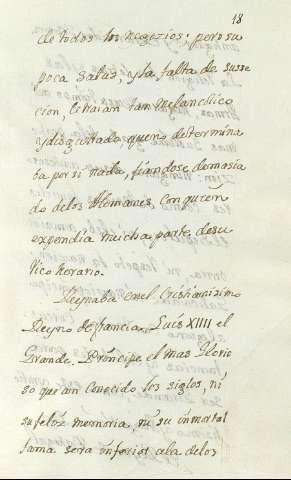 18
de todos los negozios; pero su
poca salud, y la falta de susse
cion, letraian tan Melancolico
y disgustado que no determina
ba por si nada, fiandose demasia
do delos Alemanes, con quienes
expendia mucha parte de su
rico Herario.
Reynaba en el Cristianisimo
Reyno de francia, Luis XIIII el
Grande. Principe el mas Glorio
so que an Conocido los siglos, ni
su feliz memoria, ni su inmortal
fama sera inferior a la de los